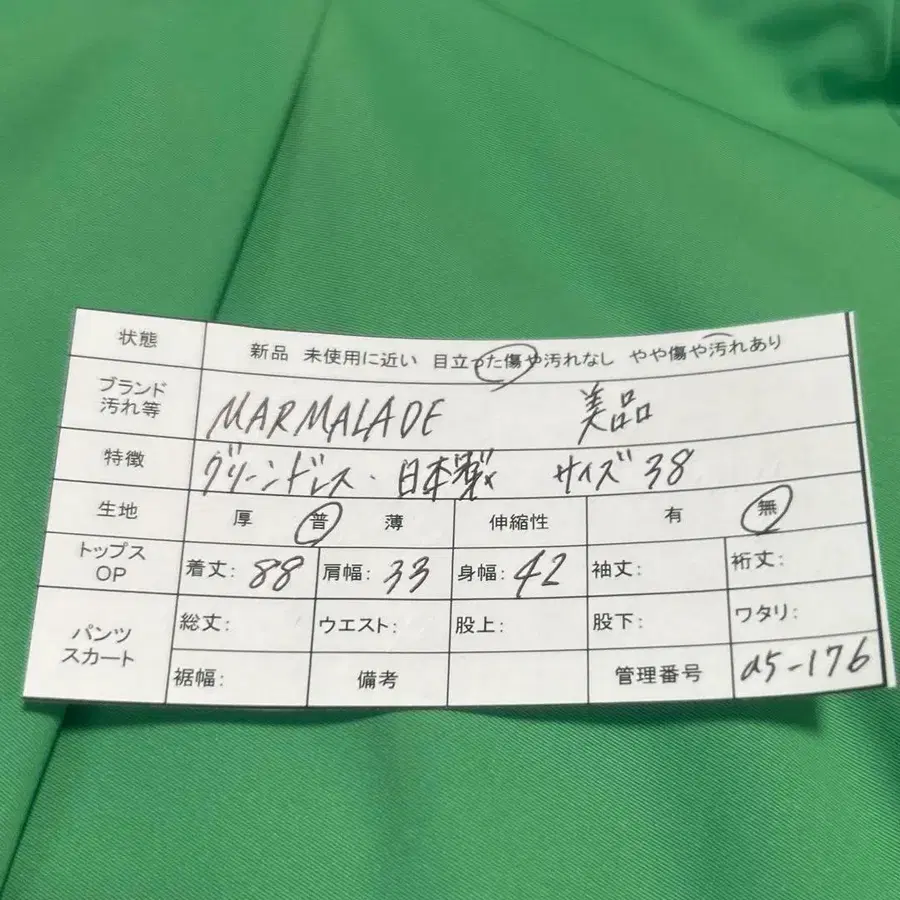 状態 新品 未使用に近い 目立った傷や汚れなし やや傷や汚れあり
ブランド 汚れ等 MARMALADE 美品
特徴 グリーンドレス・日本製 サイズ38
生地 厚 普 薄 伸縮性 有 無
トップス OP 着丈: 88 肩幅: 33 身幅: 42 袖丈: 裄丈:
パンツ スカート 総丈: ウエスト: 股上: 股下: ワタリ:
裾幅: 備考 管理番号 a5-176